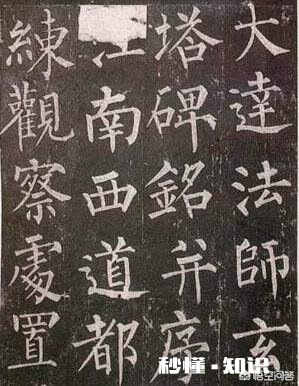 大達法師玄
塔碑銘并序
江南西道都
練觀察處置
秒懂·知识
悟空问答